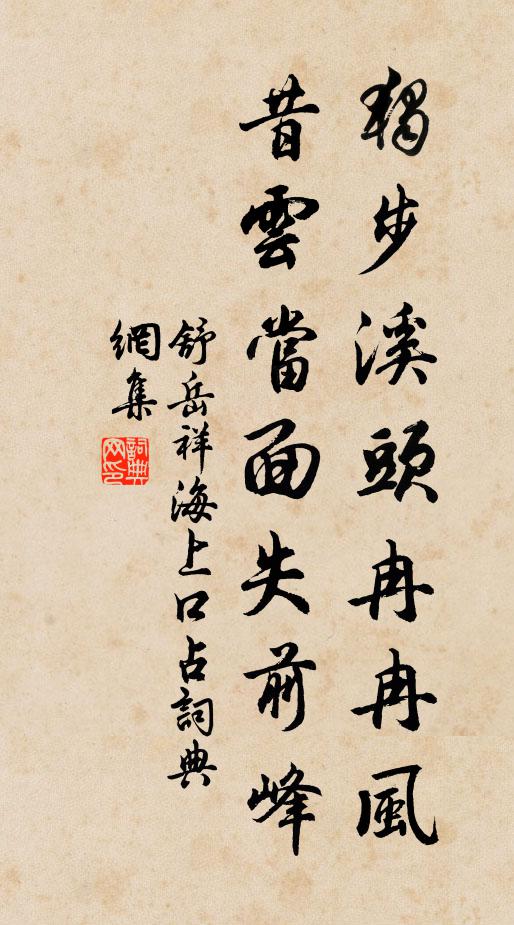 獨步溪頭冉冉風
昔雲當面失前峰
舒岳祥海上口占詞典
網集
詞典
网印